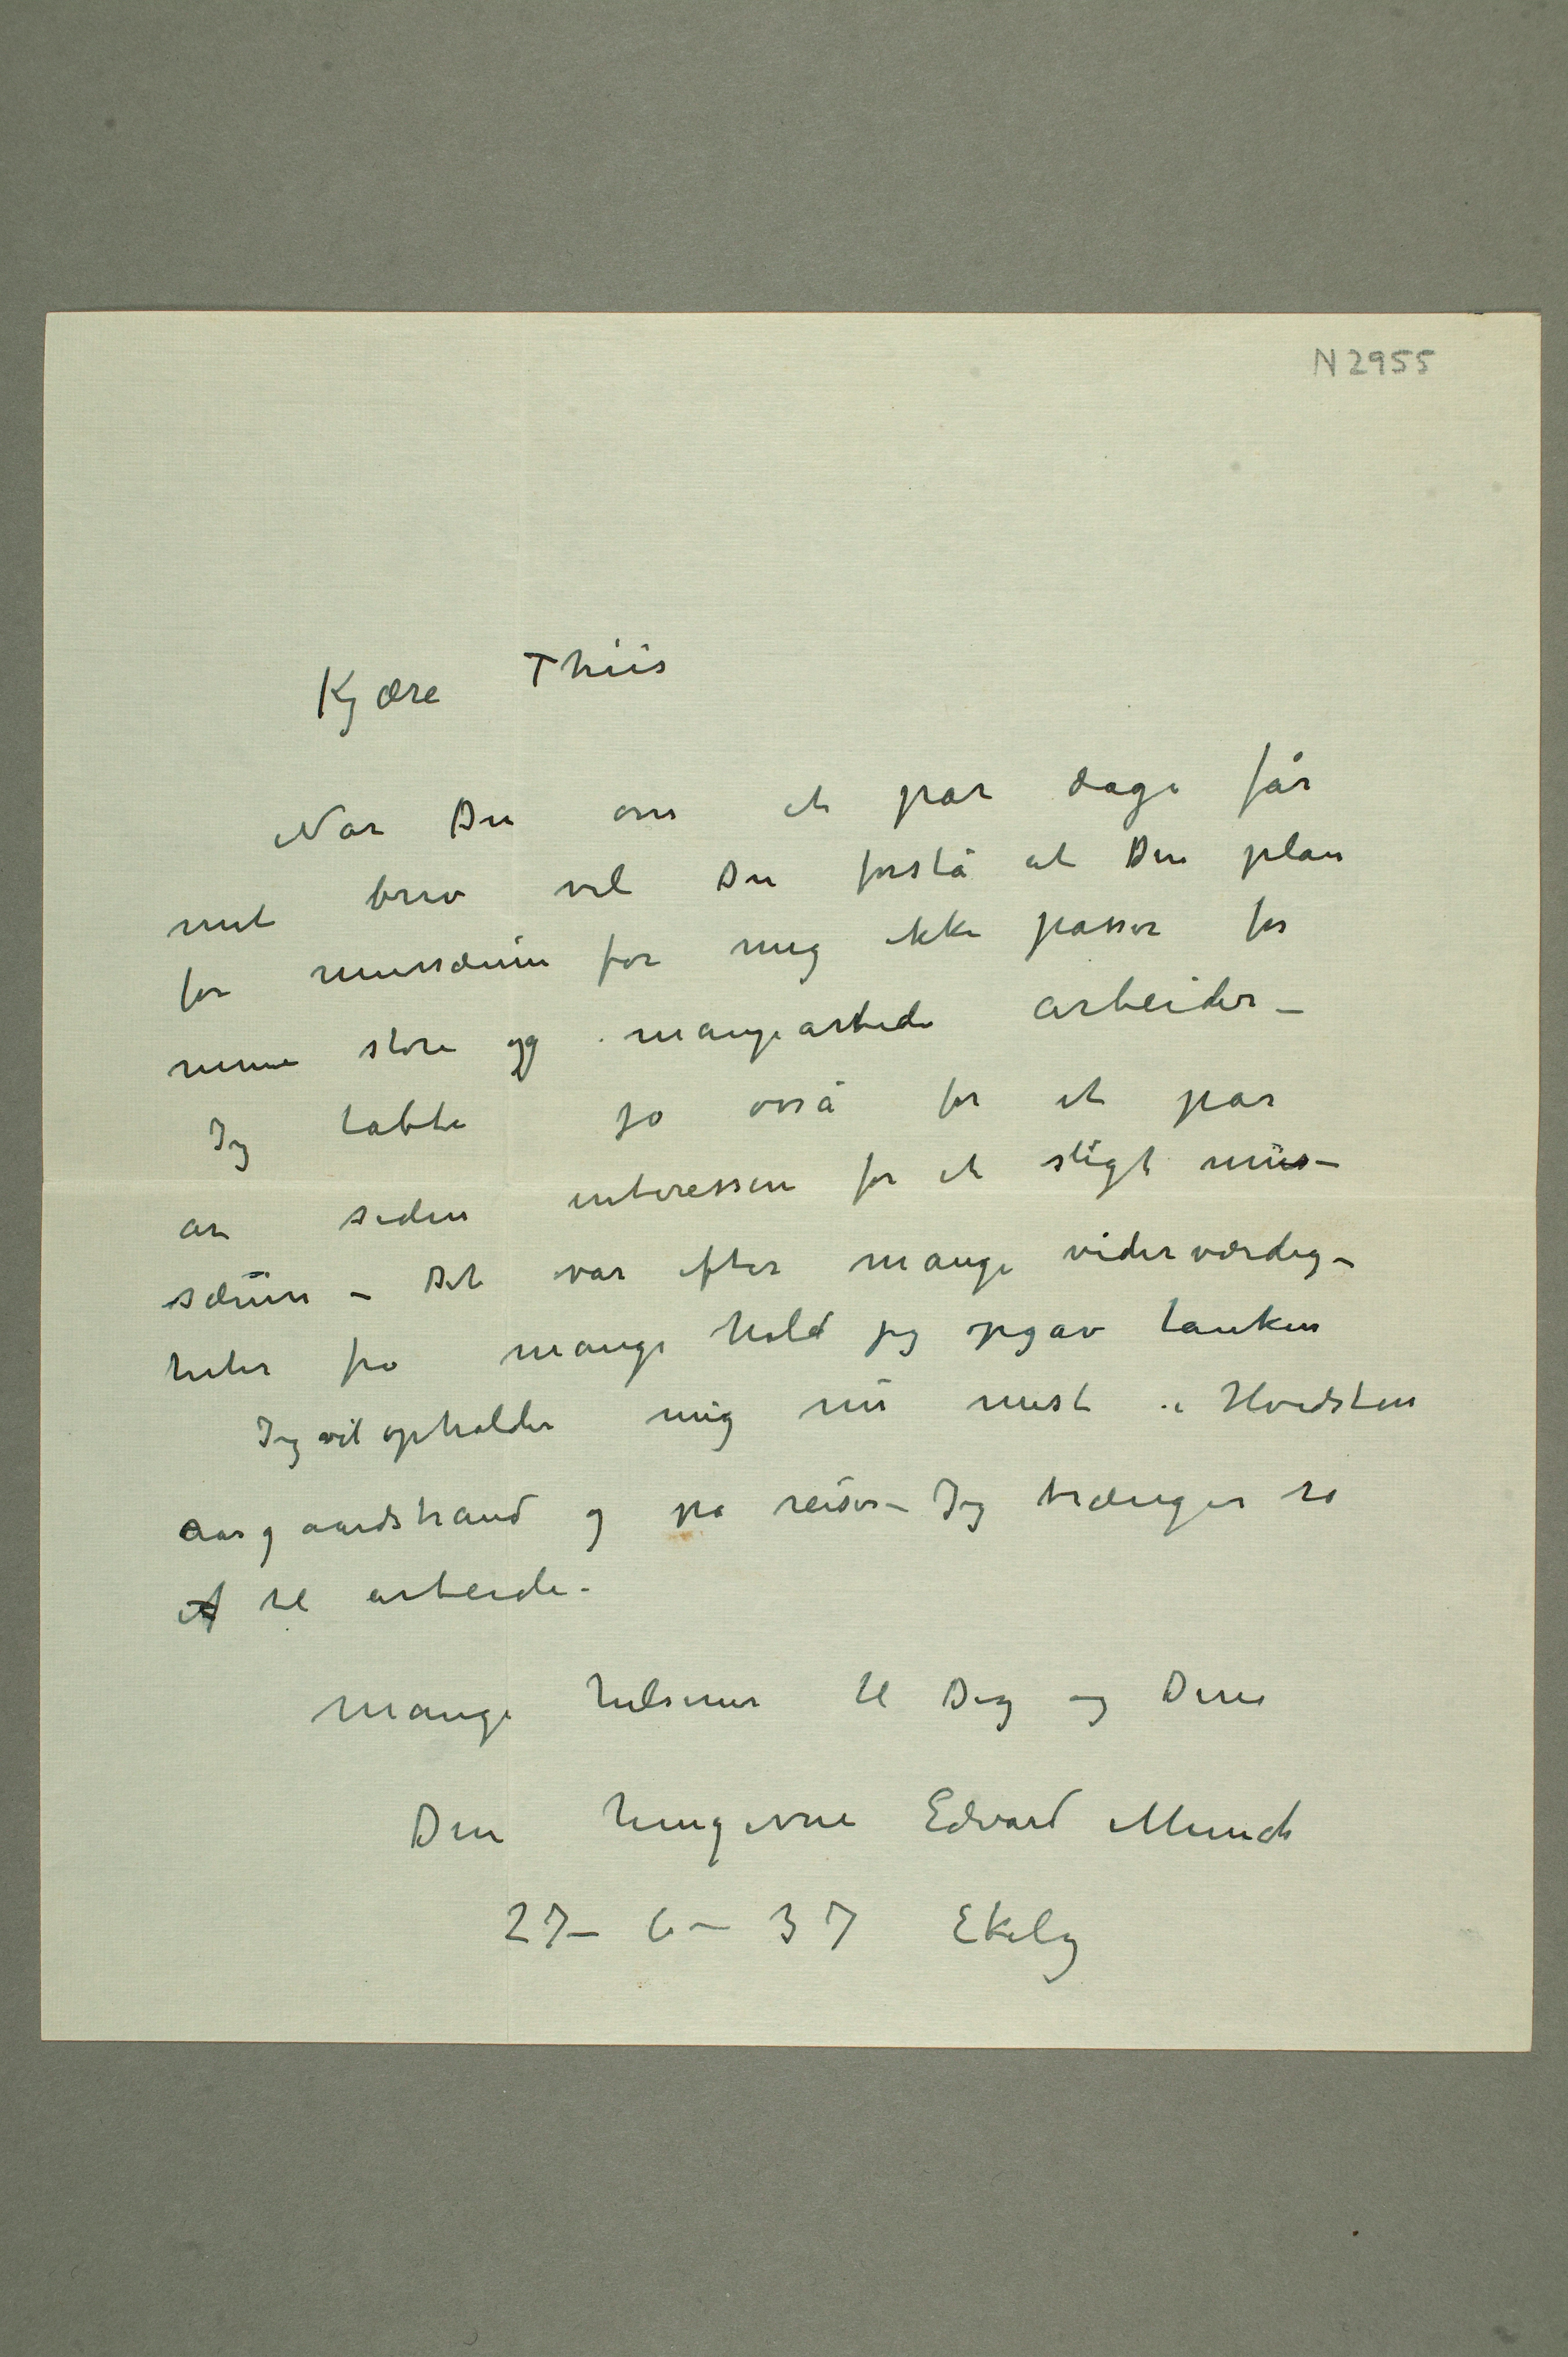 N 2955
Kjære Thiis
Når Du om et par dage får
mit brev vil Du forstå at Din plan
for mussæum for mig ikke passer for
mine store og mangeartede arbeider –
Jeg tabte jo osså for et par
år siden interessen for et sligt mus-
sæum – Det var efter mange viderværdig-
heter fra mange hold jeg opgav tanken
Jeg vil opholder mig nu mest i Hvidsten
Aasgaardstrand og på reiser – Jeg trænger ro
til arbeide.
Mange hilsener til Dig og Dine
Din hengivne Edvard Munch
27– 6 – 37 Ekely